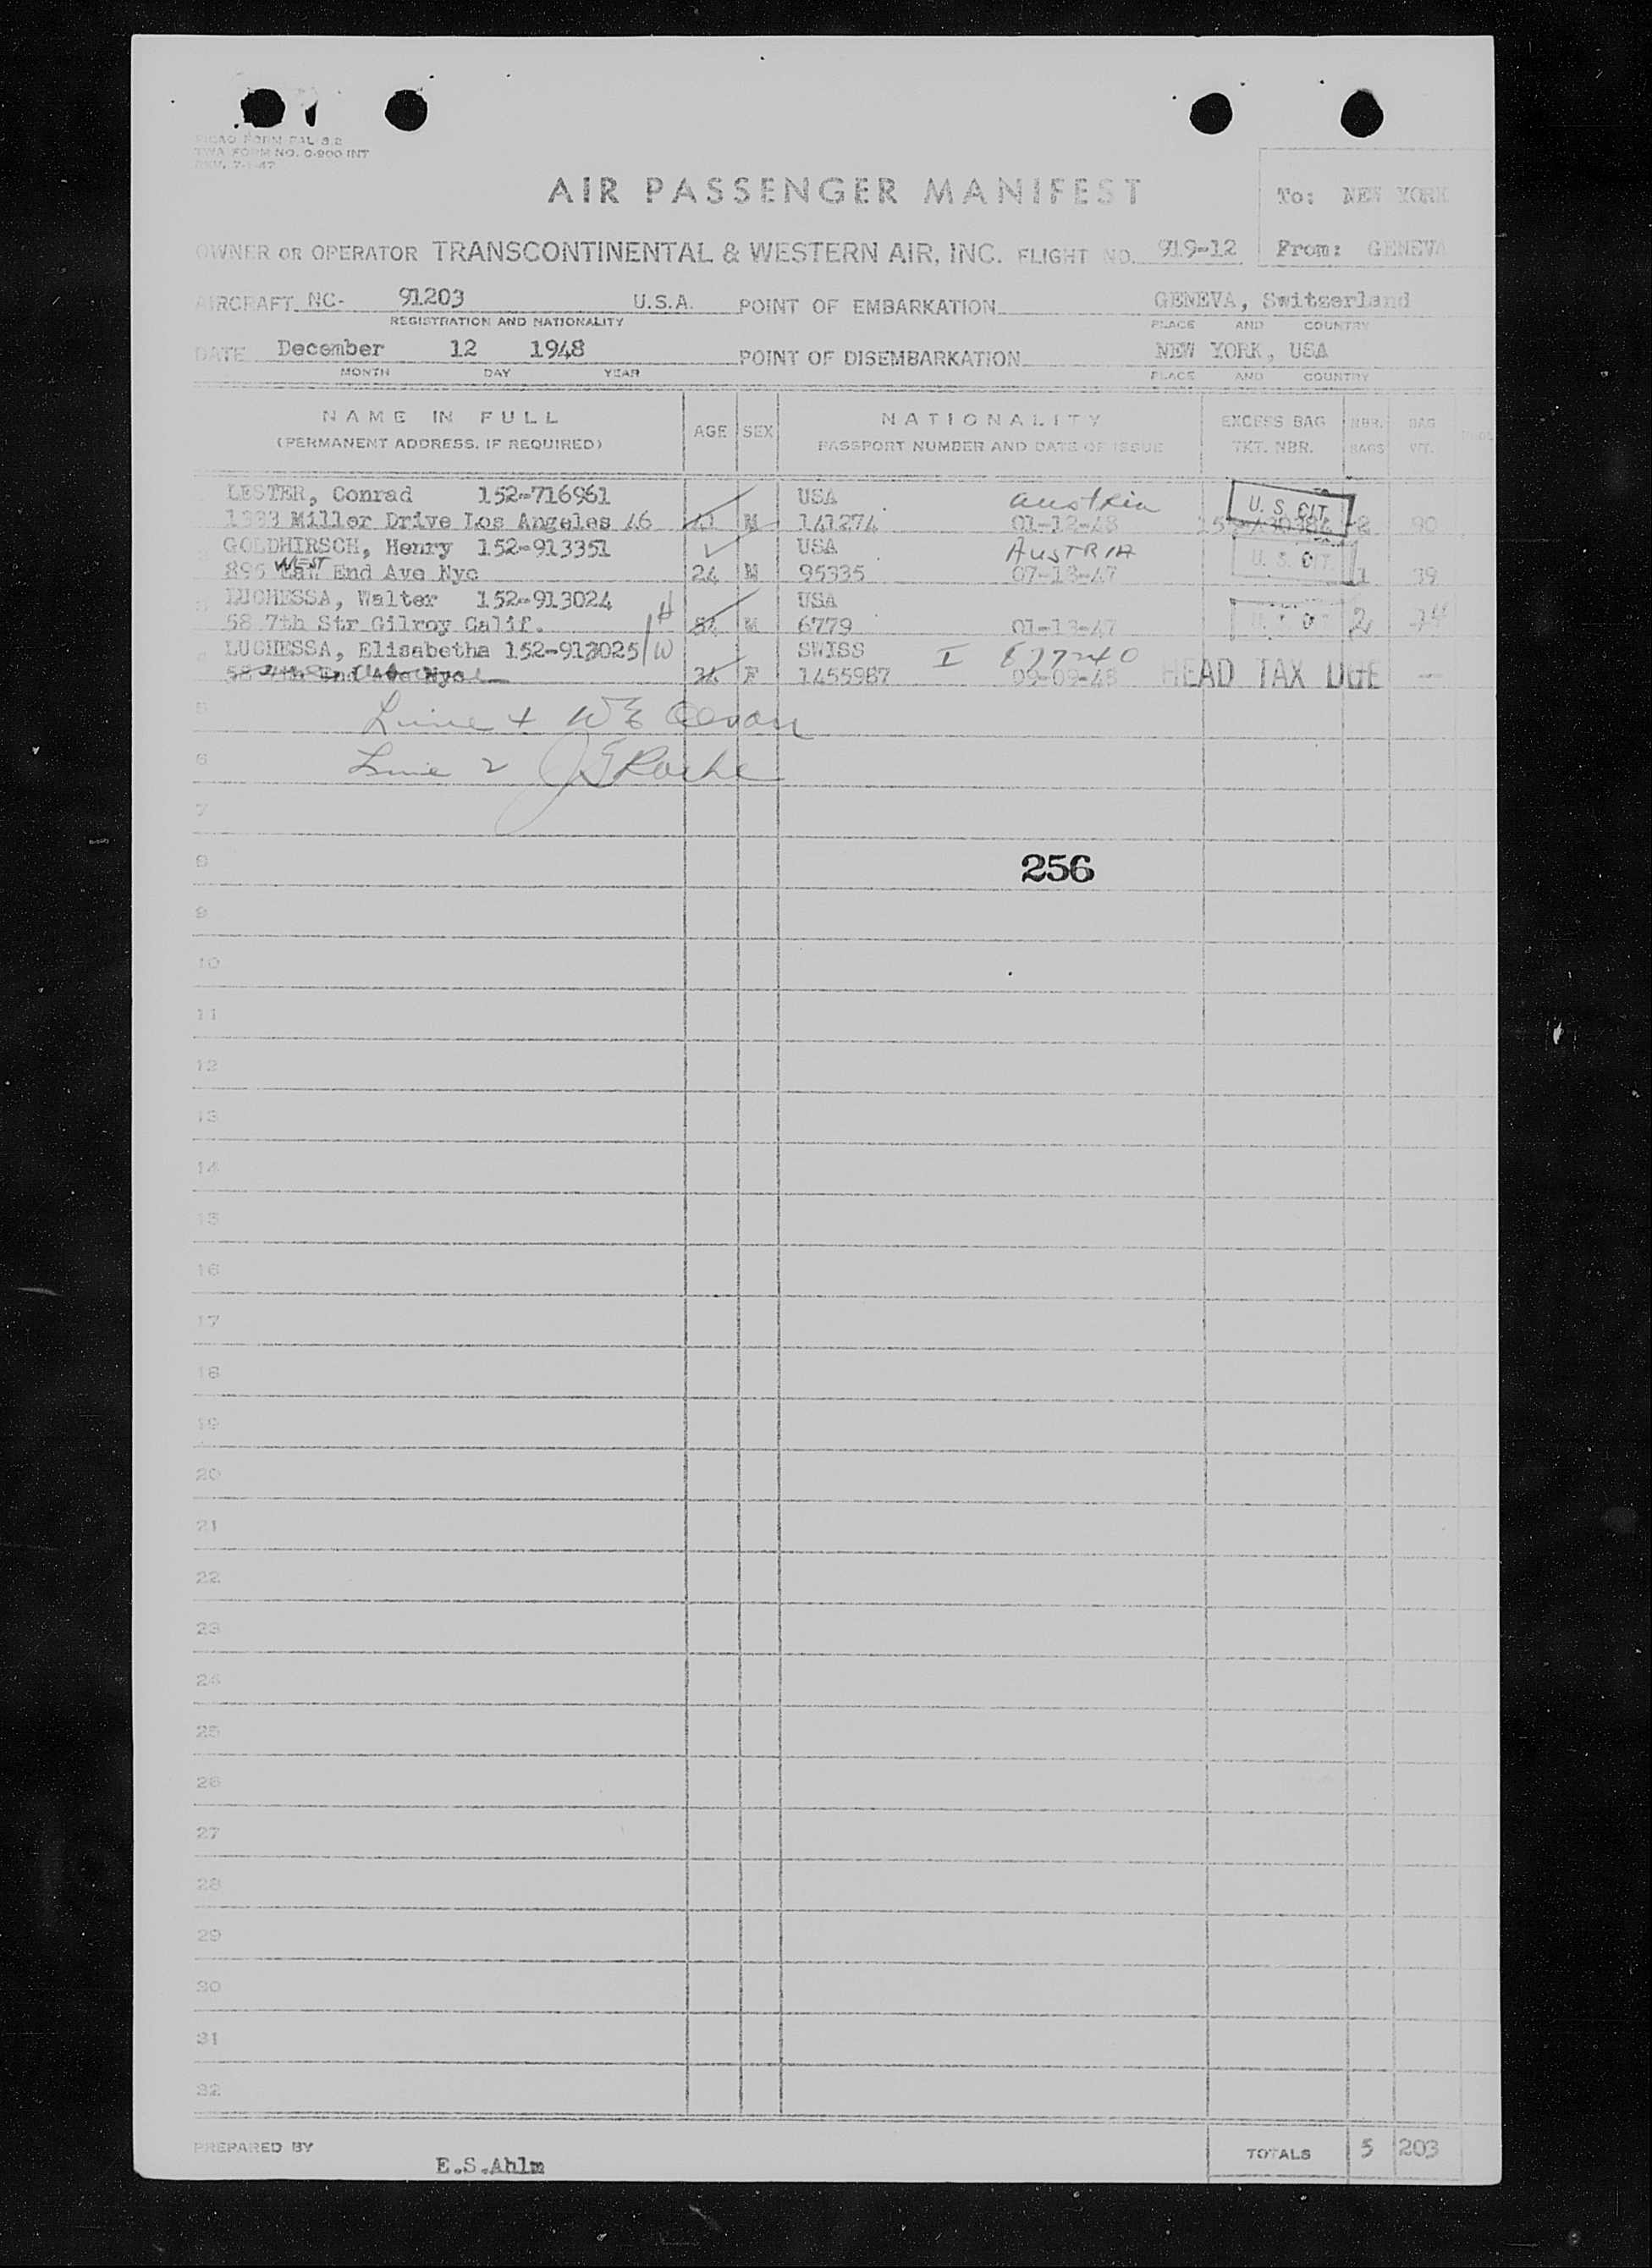 ICAO FORM FAL 3.2
TWA FORM NO. O-900 INT
REV. 7-1-47
AIR PASSENGER MANIFEST
To: NEW YORK
OWNER OR OPERATOR TRANSCONTINENTAL & WESTERN AIR, INC. FLIGHT NO. 919-12 From: GENEVA
AIRCRAFT NC- 91203 U.S.A. POINT OF EMBARKATION GENEVA, Switzerland
REGISTRATION AND NATIONALITY PLACE AND COUNTRY
DATE December 12 1948 POINT OF DISEMBARKATION NEW YORK, USA
MONTH DAY YEAR PLACE AND COUNTRY
NAME IN FULL AGE SEX NATIONALITY EXCESS BAG NBR. BAG
(PERMANENT ADDRESS, IF REQUIRED) PASSPORT NUMBER AND DATE OF ISSUE TKT. NBR. BAGS WT.
LESTER, Conrad 152-716961 USA Austria U. S. CIT.
Miller Drive Los Angeles 46 41 M 141274 01-12-48 2 90
GOLDHIRSCH, Henry 152-913351 USA AUSTRIA U. S. CIT.
895 WEST End Ave Nyc 24 M 95335 07-18-47 1 39
LUCHESSA, Walter 152-913024 H USA
58 7th Str Gilroy Calif. M 6779 01-13-47 2 74
LUCHESSA, Elisabetha 152-913025 W SWISS I
End Ave Nyc F 1455987 09-09-48 HEAD TAX DUE —
5 Line
6 Line 2 J E Roche
7
8 256
9
10
11
12
13
14
15
16
17
18
19
20
21
22
23
24
25
26
27
28
29
30
31
32
PREPARED BY E.S.Ahlm TOTALS 5 203